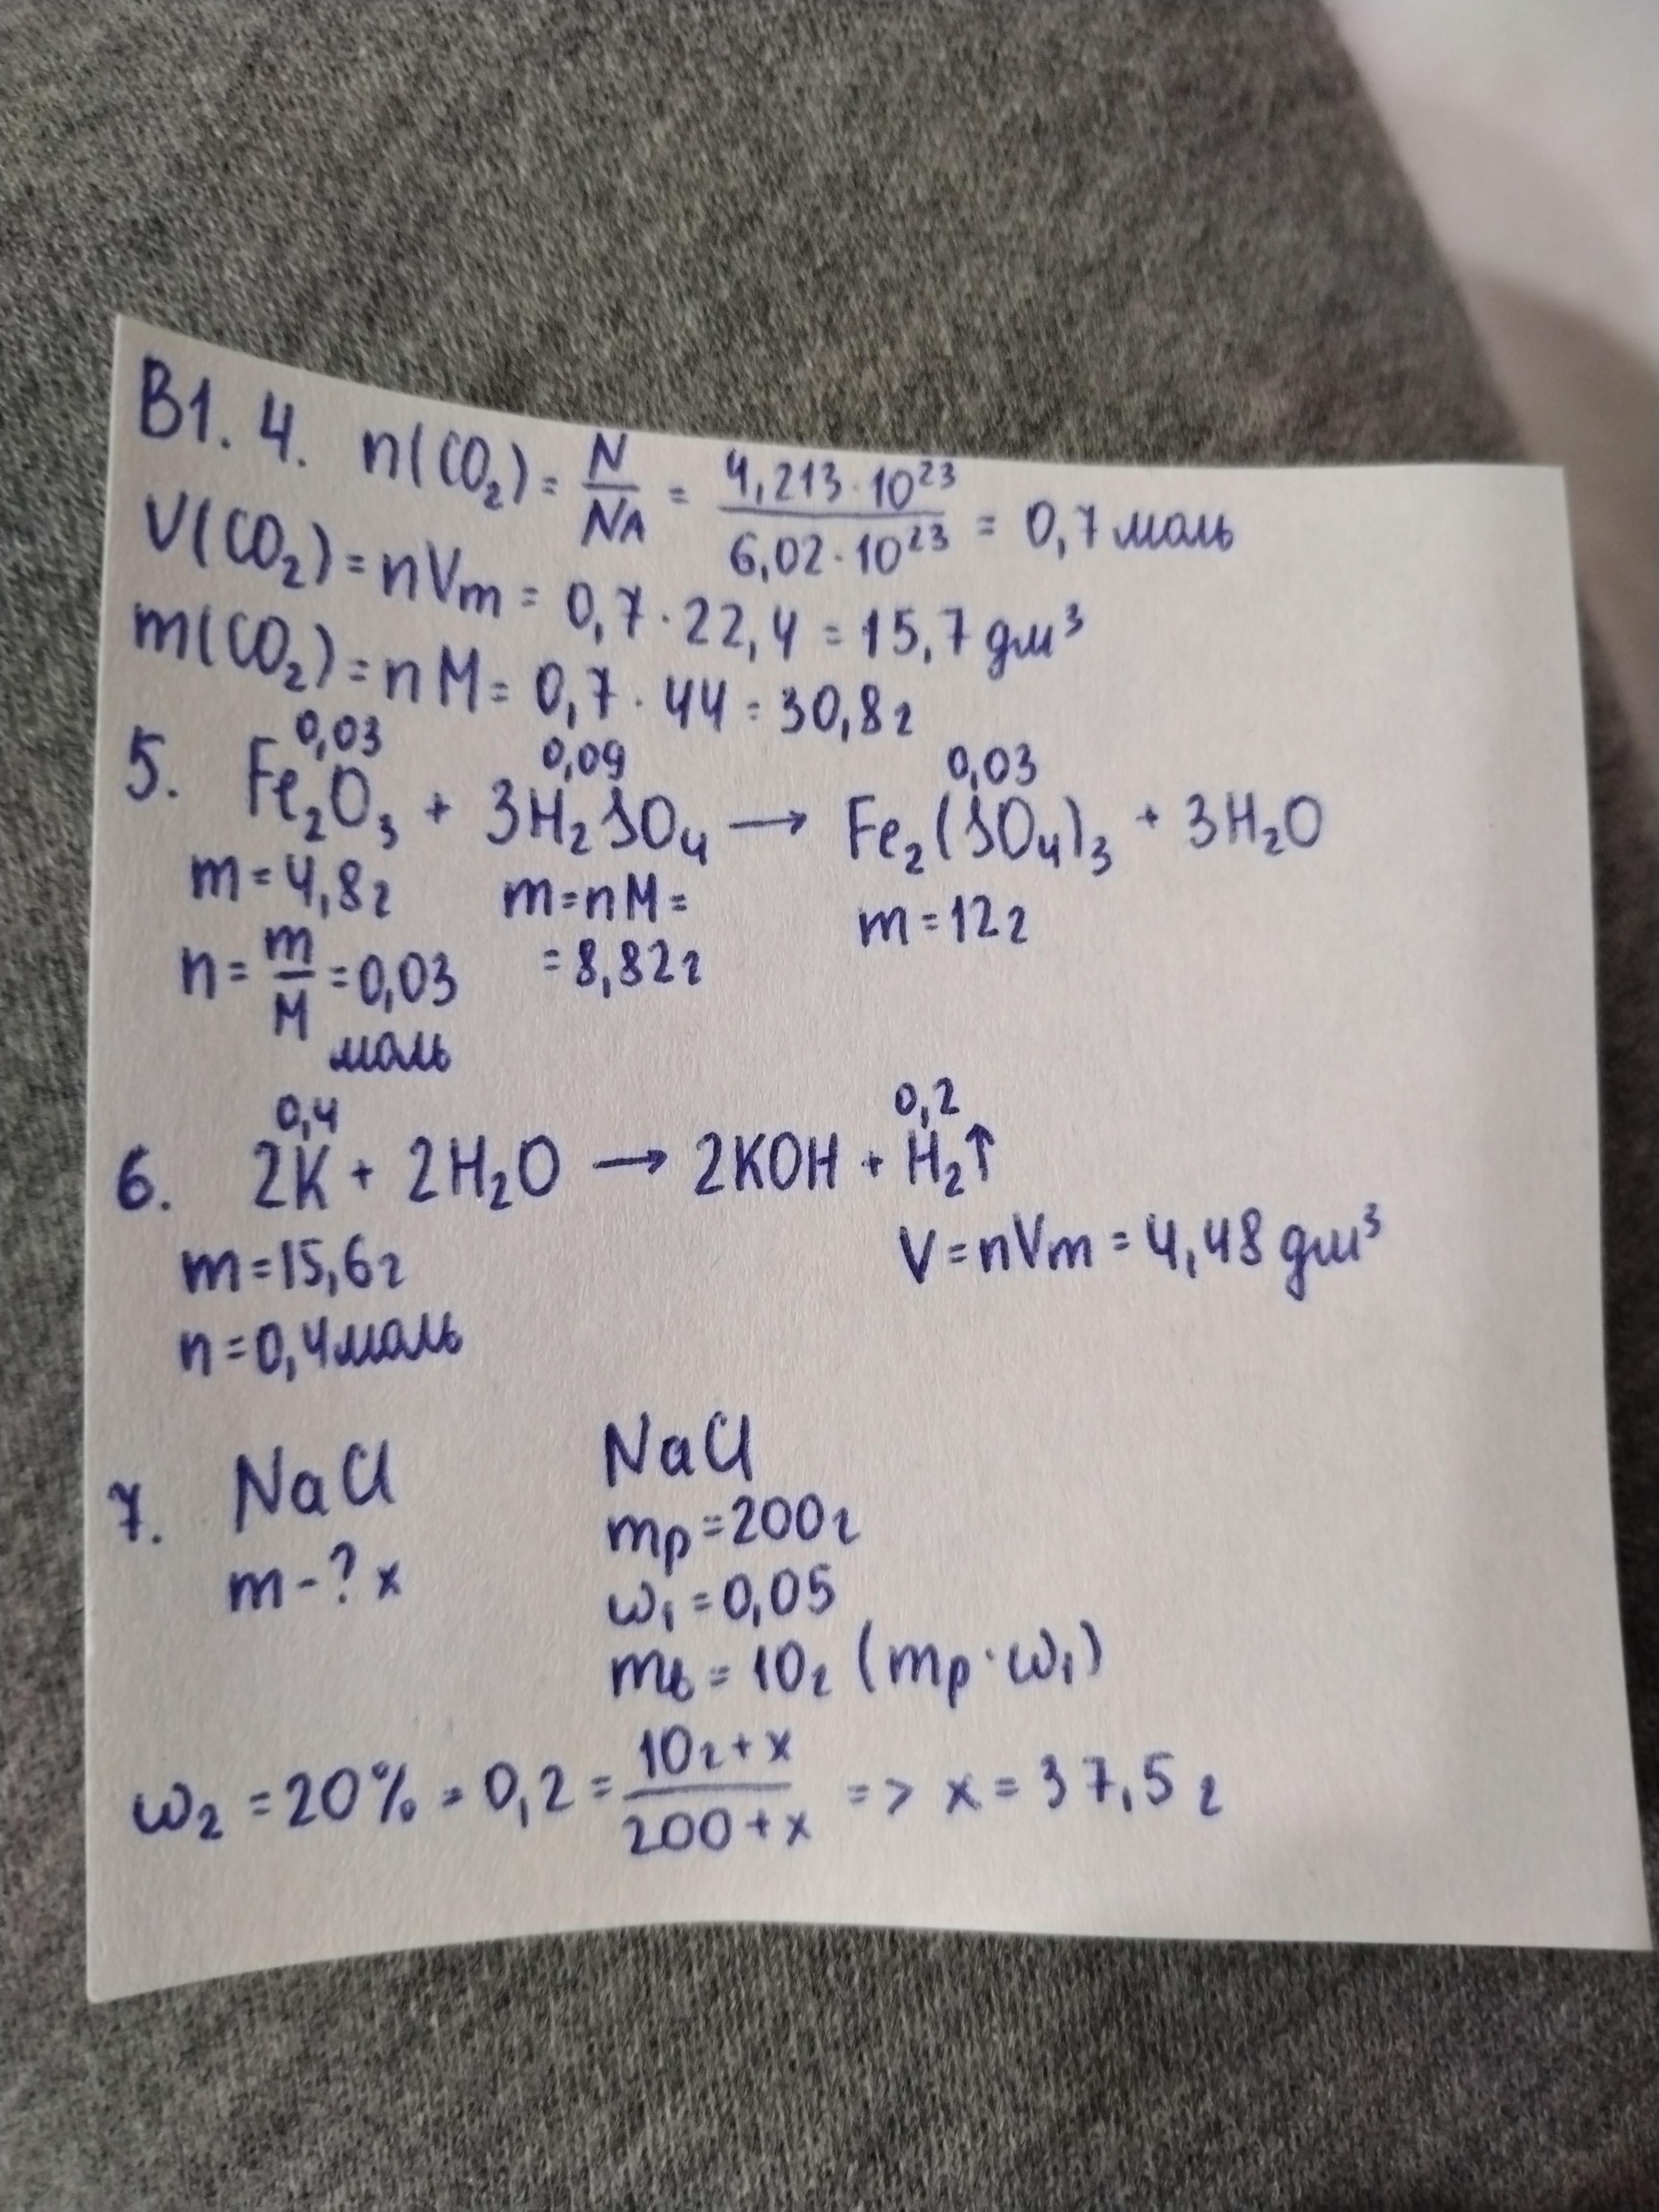 В1. 4. n(CO₂) = N/NA = 4,213·10²³/6,02·10²³ = 0,7 моль
V(CO₂) = nVm = 0,7·22,4 = 15,7 дм³
m(CO₂) = nM = 0,7·44 = 30,8 г
0,03 0,09 0,03
5. Fe₂O₃ + 3H₂SO₄ → Fe₂(SO₄)₃ + 3H₂O
m = 4,8 г m = nM = m = 12 г
n = m/M = 0,03 = 8,82 г
моль
0,4 0,2
6. 2K + 2H₂O → 2KOH + H₂↑
m = 15,6 г V = nVm = 4,48 дм³
n = 0,4 моль
7. NaCl NaCl
m - ? x mp = 200 г
ω₁ = 0,05
mв = 10 г (mp·ω₁)
ω₂ = 20% = 0,2 = 10г + x/200 + x => x = 37,5 г